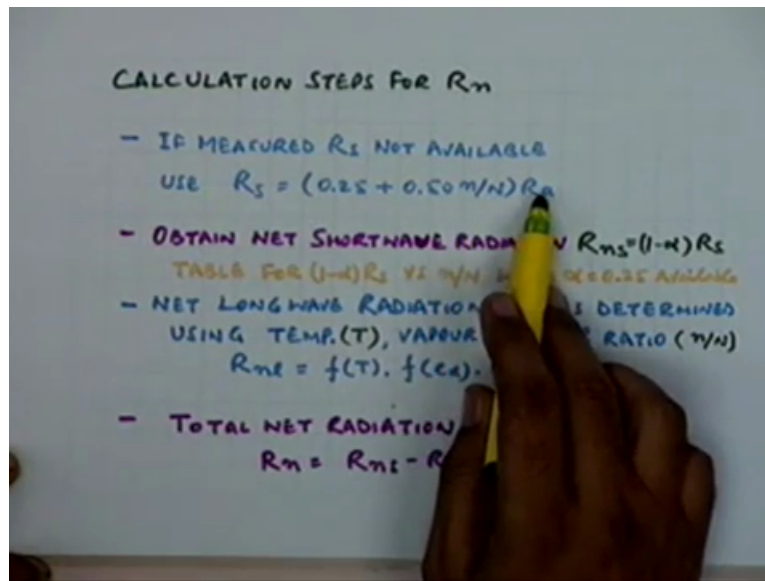 CALCULATION STEPS FOR Rn
- IF MEASURED Rs NOT AVAILABLE
USE Rs = (0.25 + 0.50 n/N) Ra
- OBTAIN NET SHORTWAVE Rns = (1-α) Rs
TABLE FOR (1-α) Rs VS n/N α = 0.25 AVAILABLE
- NET LONGWAVE RADIATION DETERMINED
USING TEMP. (T), VAPOUR RATIO (n/N)
Rnl = f(T). f(ed).
- TOTAL NET RADIATION
Rn = Rns - R